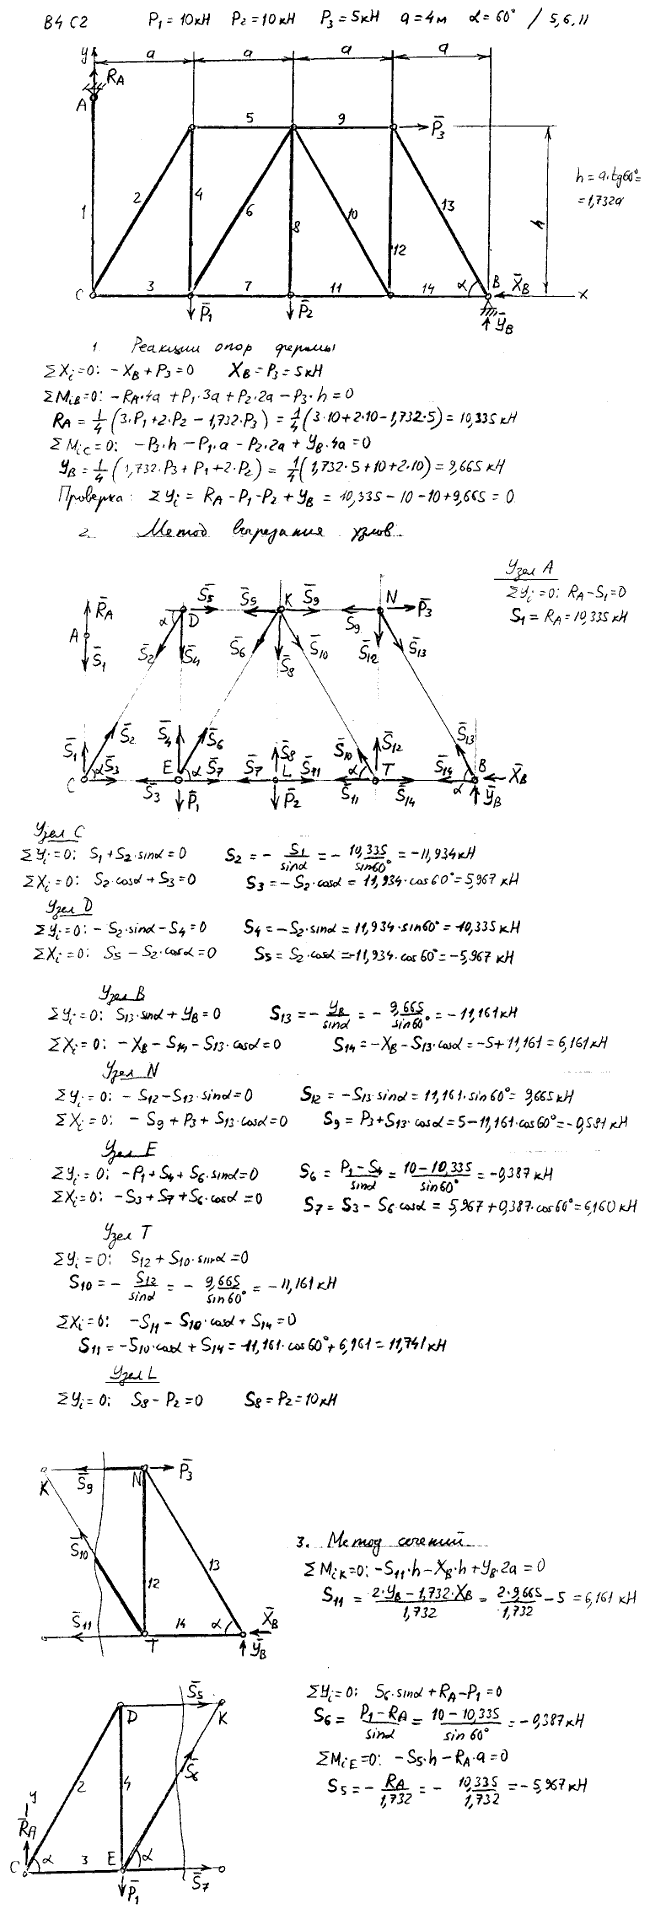 В4 С2 P₁=10кН P₂=10кН P₃=5кН a=4м α=60° / 5,6,11
y a a a a
R̄A
A
5 9 P̄₃
h = a·tg60°=
=1,732a
2 4 6 10 13
1 8 12 h
C 3 7 11 14 α B X̄B
x
P̄₁ P̄₂ ȲB
1. Реакции опор фермы
ΣXi=0: -XB+P₃=0 XB=P₃=5кН
ΣMiB=0: -RA·4a+P₁·3a+P₂·2a-P₃·h=0
RA = 1/4 (3·P₁+2·P₂-1,732·P₃) = 1/4 (3·10+2·10-1,732·5) = 10,335 кН
ΣMiC=0: -P₃·h-P₁·a-P₂·2a+YB·4a=0
YB = 1/4 (1,732·P₃+P₁+2·P₂) = 1/4 (1,732·5+10+2·10) = 9,665 кН
Проверка: ΣYi = RA-P₁-P₂+YB = 10,335-10-10+9,665 = 0
2. Метод вырезания узлов
Узел A
ΣYi=0: RA-S₁=0
S₁=RA=10,335кН
R̄A S̄₅ S̄₅ K S̄₉ N P̄₃
A α D S̄₉
S̄₁ S̄₂ S̄₄ S̄₆ S̄₈ S̄₁₀ S̄₁₂ S̄₁₃
S̄₁ S̄₂ S̄₄ S̄₆ S̄₈ S̄₁₀ S̄₁₂ S̄₁₃
C α S̄₃ E α S̄₇ S̄₇ L S̄₁₁ α T S̄₁₄ B X̄B
S̄₃ P̄₁ P̄₂ S̄₁₁ S̄₁₄ α ȲB
Узел C
ΣYi=0: S₁+S₂·sinα=0 S₂ = - S₁/sinα = - 10,335/sin60° = -11,934кН
ΣXi=0: S₂·cosα+S₃=0 S₃=-S₂·cosα=11,934·cos60°=5,967кН
Узел D
ΣYi=0: -S₂·sinα-S₄=0 S₄=-S₂·sinα=11,934·sin60°=10,335кН
ΣXi=0: S₅-S₂·cosα=0 S₅=S₂·cosα=-11,934·cos60°=-5,967кН
Узел B
ΣYi=0: S₁₃·sinα+YB=0 S₁₃=- YB/sinα = - 9,665/sin60° = -11,161кН
ΣXi=0: -XB-S₁₄-S₁₃·cosα=0 S₁₄=-XB-S₁₃·cosα=-5+11,161=6,161кН
Узел N
ΣYi=0: -S₁₂-S₁₃·sinα=0 S₁₂=-S₁₃·sinα=11,161·sin60°=9,665кН
ΣXi=0: -S₉+P₃+S₁₃·cosα=0 S₉=P₃+S₁₃·cosα=5-11,161·cos60°=-0,581кН
Узел E
ΣYi=0: -P₁+S₄+S₆·sinα=0 S₆= P₁-S₄/sinα = 10-10,335/sin60° = -0,387кН
ΣXi=0: -S₃+S₇+S₆·cosα=0 S₇=S₃-S₆·cosα=5,967+0,387·cos60°=6,160кН
Узел T
ΣYi=0: S₁₂+S₁₀·sinα=0
S₁₀=- S₁₂/sinα = - 9,665/sin60° = -11,161кН
ΣXi=0: -S₁₁-S₁₀·cosα+S₁₄=0
S₁₁=-S₁₀·cosα+S₁₄=11,161·cos60°+6,161=11,741кН
Узел L
ΣYi=0: S₈-P₂=0 S₈=P₂=10кН
K S̄₉ N P̄₃
S̄₁₀ 12 13
S̄₁₁ T 14 α X̄B
ȲB
3. Метод сечений
ΣMiK=0: -S₁₁·h-XB·h+YB·2a=0
S₁₁= 2·YB-1,732·XB/1,732 = 2·9,665/1,732 -5=6,161кН
D S̄₅ K
2 4 S̄₆
y
R̄A
C α 3 E α S̄₇
P̄₁
ΣYi=0: S₆·sinα+RA-P₁=0
S₆= P₁-RA/sinα = 10-10,335/sin60° = -0,387кН
ΣMiE=0: -S₅·h-RA·a=0
S₅=- RA/1,732 = - 10,335/1,732 = -5,967кН